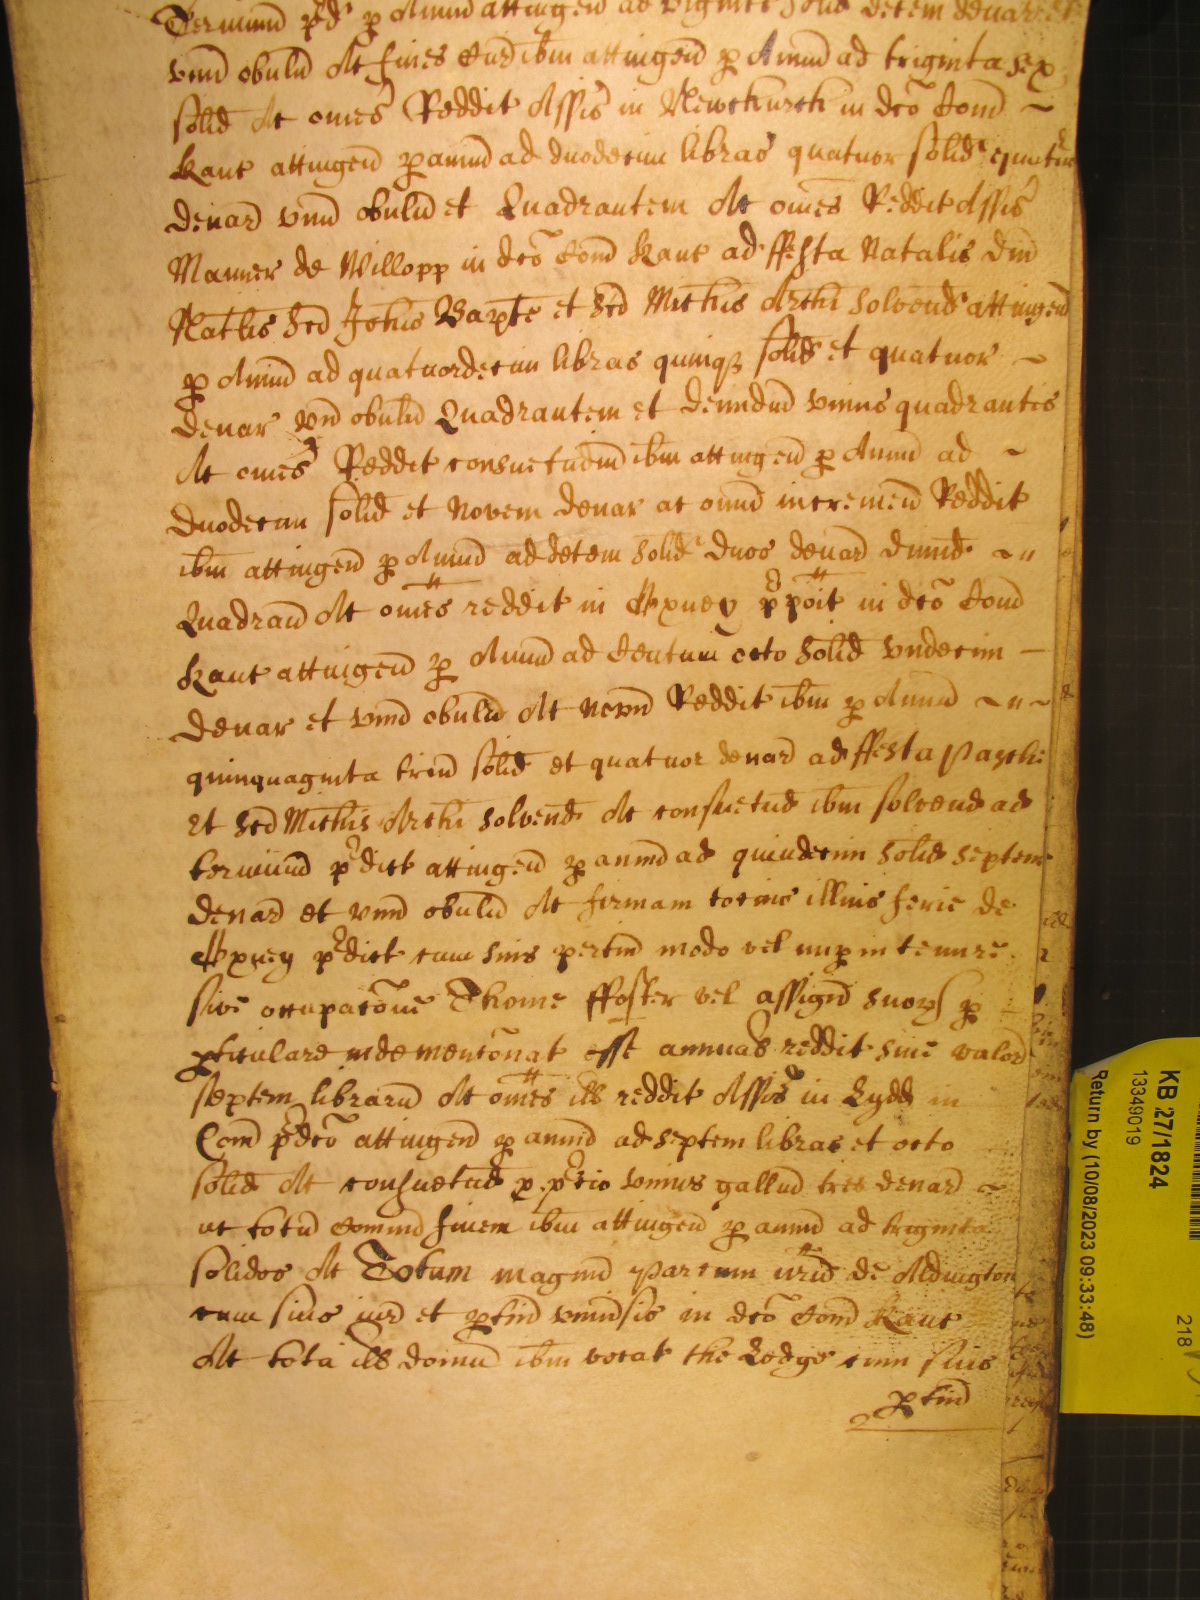 Terminũ p̃d p Annũ attingeñ ad viginti solid decem denar et
vnũ obulũ Ac fines Cur ibm attingeñ p Annũ ad triginta sex
solid Ac omẽs Reddit Assiš in Newchurch in dc̃o Com̃ ~
Kanc attingeñ p annũ ad duodecim libras quatuor solid quatuor
denar vnũ obulũ et Quadrantem Ac omẽs Reddit Assiš
Maner de Willopp in dc̃o Com̃ Kanc ad ffesta Natalis Dñi
Natlis Sc̃i Johis Bapte et Sc̃i Michis Archi solvend attingeñ
p Annũ ad quatuordecim libras quinqʒ solid et quatuor ~
denar vñ obulũ Quadrantem et dimidiũ vnius quadrantis
Ac omẽs Reddit consuetudin ibm attingeñ p Annũ ad ~
duodecim solid et Novem denar ac omne incremeñ Reddit
ibm attingeñ p Annũ ad decem solid duos denar dimid ~ "
Quadrañ Ac omẽs reddit in Apxney in dc̃o Com̃
Kanc attingeñ p Annũ ad Centum octo solid vndecim —
denar et vnũ obulũ Ac novũ Reddit ibm p Annũ ~ " ~
quinquaginta triũ solid et quatuor denar ad ffesta Pasche
et Sc̃i Michis Archi solvend Ac consuetud ibm solvend ad
terminũ p̃dict attingeñ p annũ ad quindecim solid septem
denar et vnũ obulũ Ac firmam totius illius ferie de
Apxney p̃dict cum suis pertiñ modo vel nup in tenure
sive occupac̃one Thome ffoster vel assigñ suoꝝ p
pticulare inde menc̃onat esse annual reddit sive valor
septem librarũ Ac omẽs ill reddit Assiš in Lydd in
Com̃ p̃dc̃o attingeñ p annũ ad septem libras et octo
solid Ac consuetud p p̃cio vnius gallinĩ tres denar ~
ac totũ Com̃unẽ finem ibm attingeñ p annũ ad triginta
solidos Ac Totum magnũ Parcum nr̃ũ de Aldington
cum suis iur et ptiñ vniũsis in dc̃o Com̃ Kanc
Ac tota ill domũ ibm vocat the Lodge cum suis
ptiñ
KB 27/1824
13349019
218
Return by (10/08/2023 09:33:48)